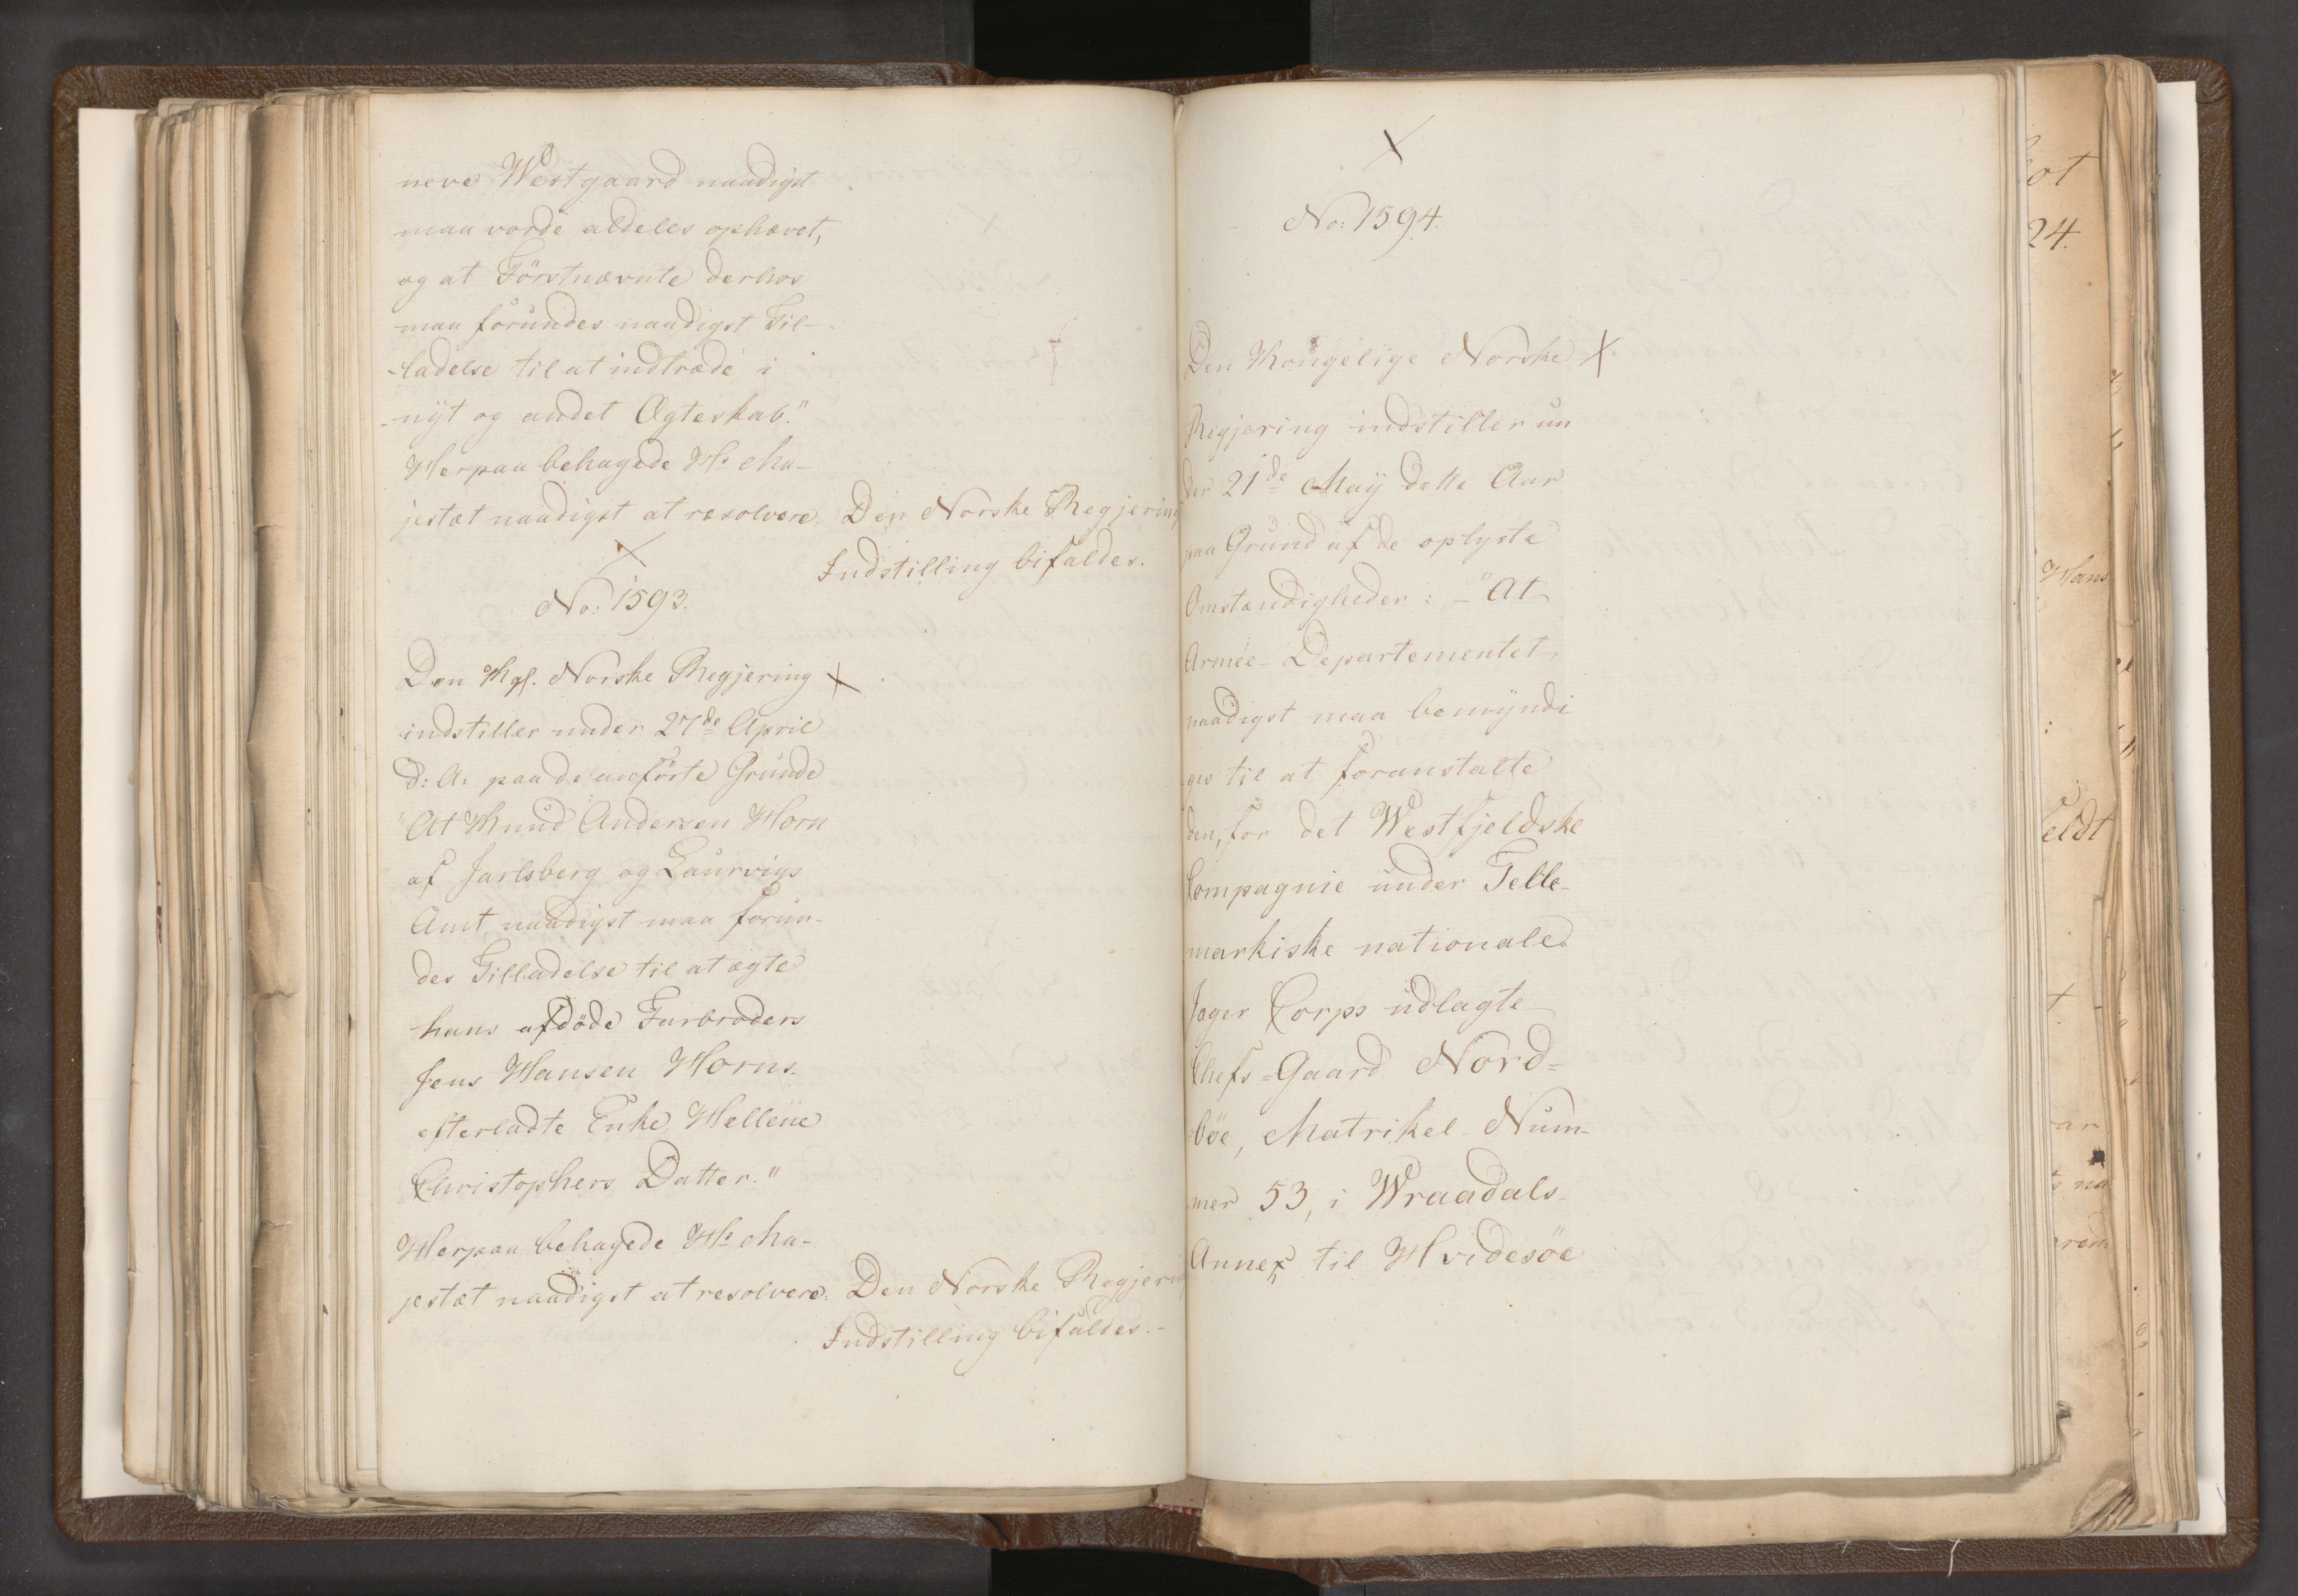 neve Westgaard naadigst
maa vorde aldeles ophævet,
og at Förstnævnte derhos
maa forundes naadigst Til-
ladelse til at indtræde i
nyt og andet Ægteskab."
Herpaa behagede Hs Ma-
jestæt naadigst at resolvere: Den Norske Regjering
Indstilling bifaldes.
No: 1593.
Den Kgl. Norske Regjering
indstiller under 27de April
d: A: paa de anförte Grunde
"At Knud Andersen Horn
af Jarlsberg og Laurvigs
Amt, naadigst maa forun-
des Tilladelse til at ægte
hans afdöde Farbroders
Jens Hansen Horns.
efterladte Enke Hellene
Christophers Datter."
Herpaa behagede Hs Ma-
jestæt naadigst at resolvere: Den Norske Regjering
Indstilling bifaldes.-
No: 1594.
Den Kongelige Norske
Regjering indstiller un
der 21de May dette Aar
paa Grund af de oplyste
Omstændigheder: - "At
Armée-Departementet
naadigst maa bemyndi
ges til at foranstalte
den, for det Westfjeldske
Compagnie under Telle-
markiske nationale
Jæger Corps udlagte
Chefs=Gaard Nord=
böe, Matrikel Num-
mer 53, i Wraadals
Annex til Hvidesöe
ot
24.
Hans
eldt